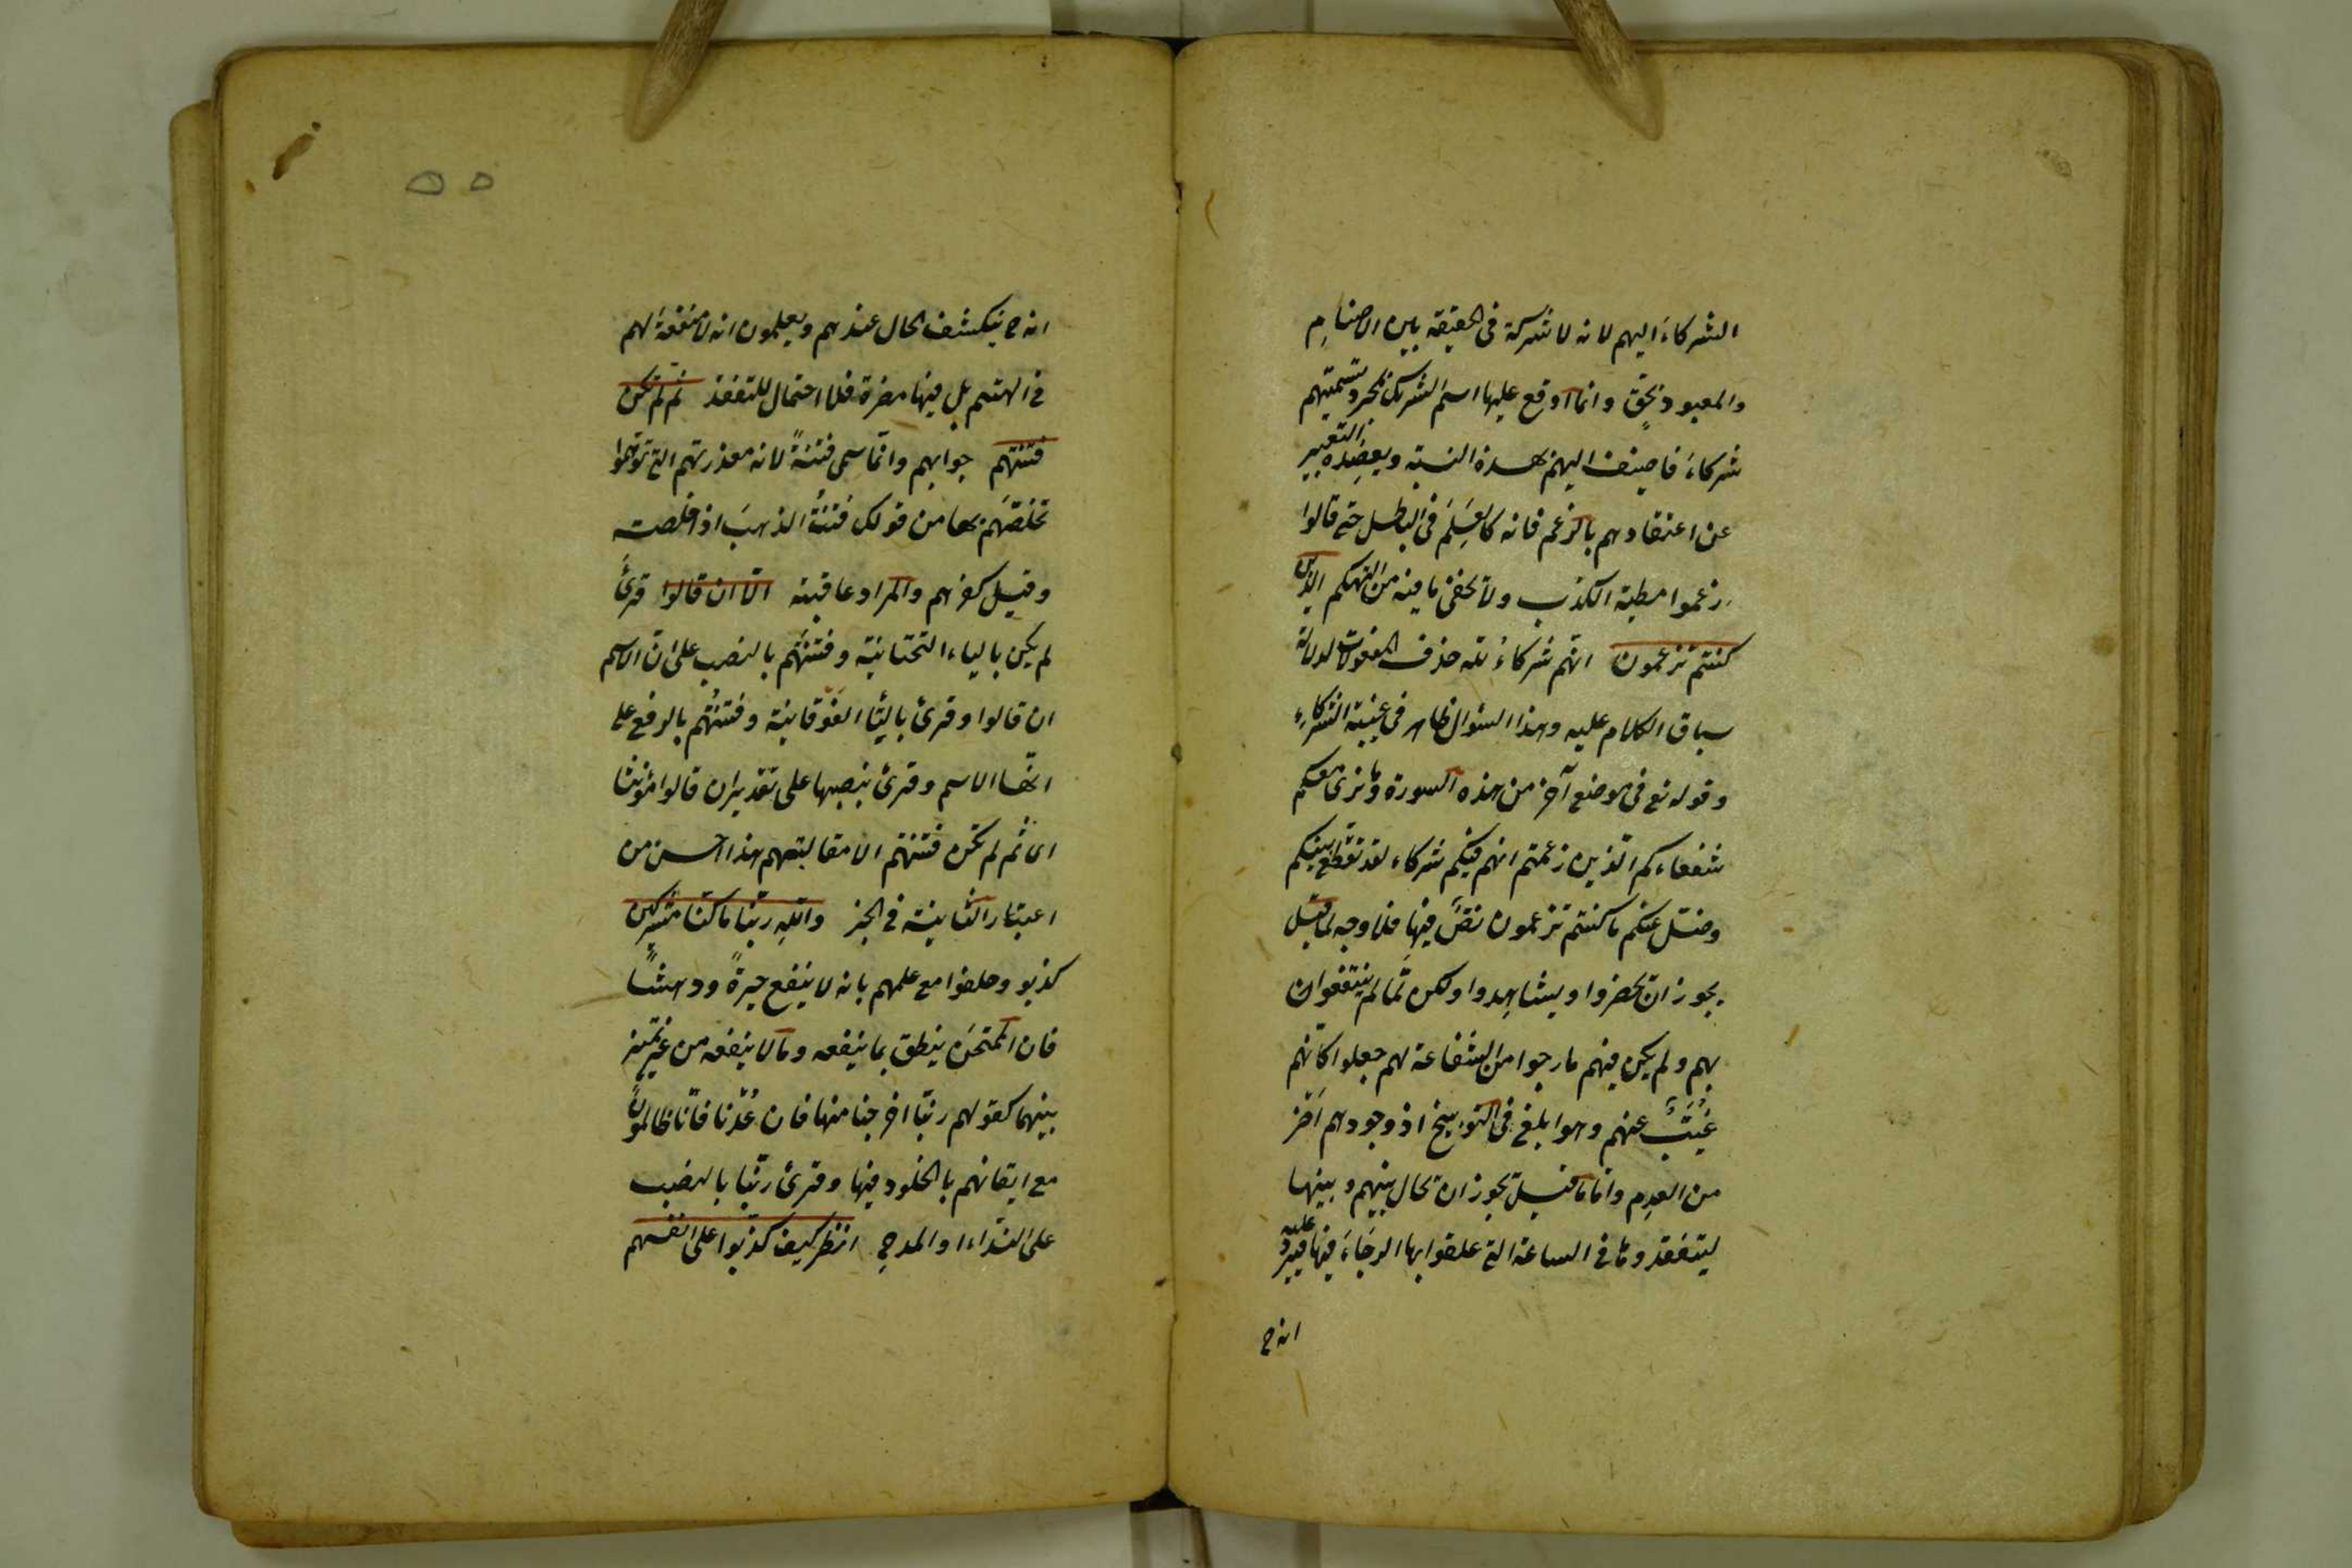 الشركاءَ اليهم لانه لا شركة فى الحقيقة بين الاصنامِ
والمعبود بحقٍّ وانما اوقع عليها اسم الشريك بمجرد تسميتهم
شركاءَ فاضيف اليهم بهذه النسبة ويعضِده التعبير
عن اعتقادهم بالزعم فانه كالعَلَم فى الباطل حتى قالوا
زعموا مطية الكذب ولا يخفى ما فيه من التهكم الذين
كنتم تزعمون انهم شركاءُ لله حذف المفعولان لدلالة
سباق الكلام عليه وهذا السؤال ظاهر فى غيبة الشركاءِ
وقوله تع فى موضع آخر من هذه السورة وما نرى معكم
شفعاءكم الّذين زعمتم انهم فيكم شركاء لقد تقطّع بينكم
وضل عنكم ما كنتم تزعمون نصٌّ فيها فلا وجه لما قيل
يجوز ان يحضروا ويشاهدوا ولكن لمّا لم ينتفعوا
بهم ولم يكن فيهم ما رجوا من الشفاعة لهم جعلوا كانّهم
غُيَّبٌ عنهم وهو ابلغ فى التوبيخ اذ وجودهم اضرّ
من العدم وامّا ما قيل يجوز ان يحال بينهم وبينها
ليتفقدوها فى الساعة التى علقوا بها الرجاءَ فيها فيردّ عليه
انه ح
٥٥
انه ح ينكشف الحال عندهم ويعلمون انه لا منفعة لهم
فى الهتهم بل فيها مضرة فلا احتمال للتفقد ثم لم تكن
فتنتهم جوابهم وانّما سمى فتنةً لانه معذرتهم التى توهّموا
تخلّصَهم بها من قولك فتنتُ الذهبَ اذا خلصته
وقيل كفرهم والمراد عاقبته الّا ان قالوا قرئَ
لم يكن بالياء التحتانية وفتنتَهم بالنصب على انّ الاسم
ان قالوا وقرئ بالتّاء الفوقانية وفتنتُهم بالرفع على
انّها الاسم وقرئ بنصبها على تقدير ان قالوا مؤنثا
اى ثم لم تكن فتنتهم الا مقالتهم هذا احسن من
اعتبار التانيث فى الخبر واللهِ ربّنا ما كنا مشركين
كذبوا وحلفوا مع علمهم بانه لا ينفع حيرةً ودهشًا
فان الممتحَن ينطق بما ينفعه وما لا ينفعه من غير تميز
بينهما كقولهم ربّنا اخرجنا منها فان عُدْنا فانّا ظالمون
مع ايقانهم بالخلود فيها وقرئ ربّنا بالنصب
على النّداء او المدح انظر كيف كذبوا على انفسهم